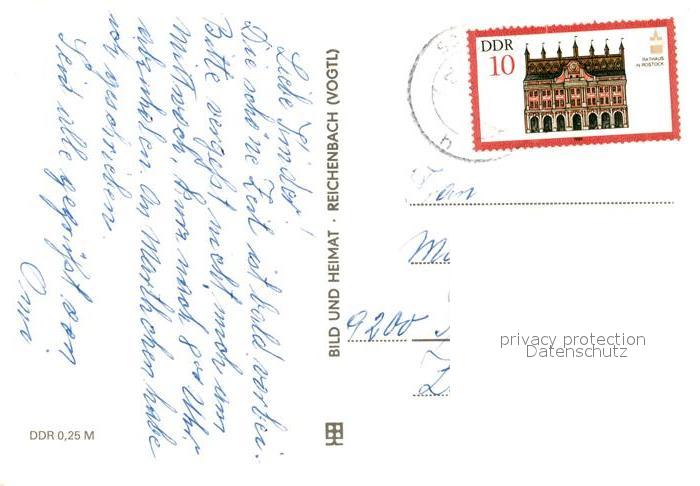 Liebe Kinder!
Die schöne Zeit ist bald vorbei.
Bitte vergeßt nicht, mich am
Mittwoch, kurz nach Uhr
abzuholen. An habe
ich geschrieben.
Seid alle gegrüßt von
Oma
DDR 0,25 M
BILD UND HEIMAT · REICHENBACH (VOGTL)
DDR
10
RATHAUS
IN ROSTOCK
Fam
9200
privacy protection
Datenschutz